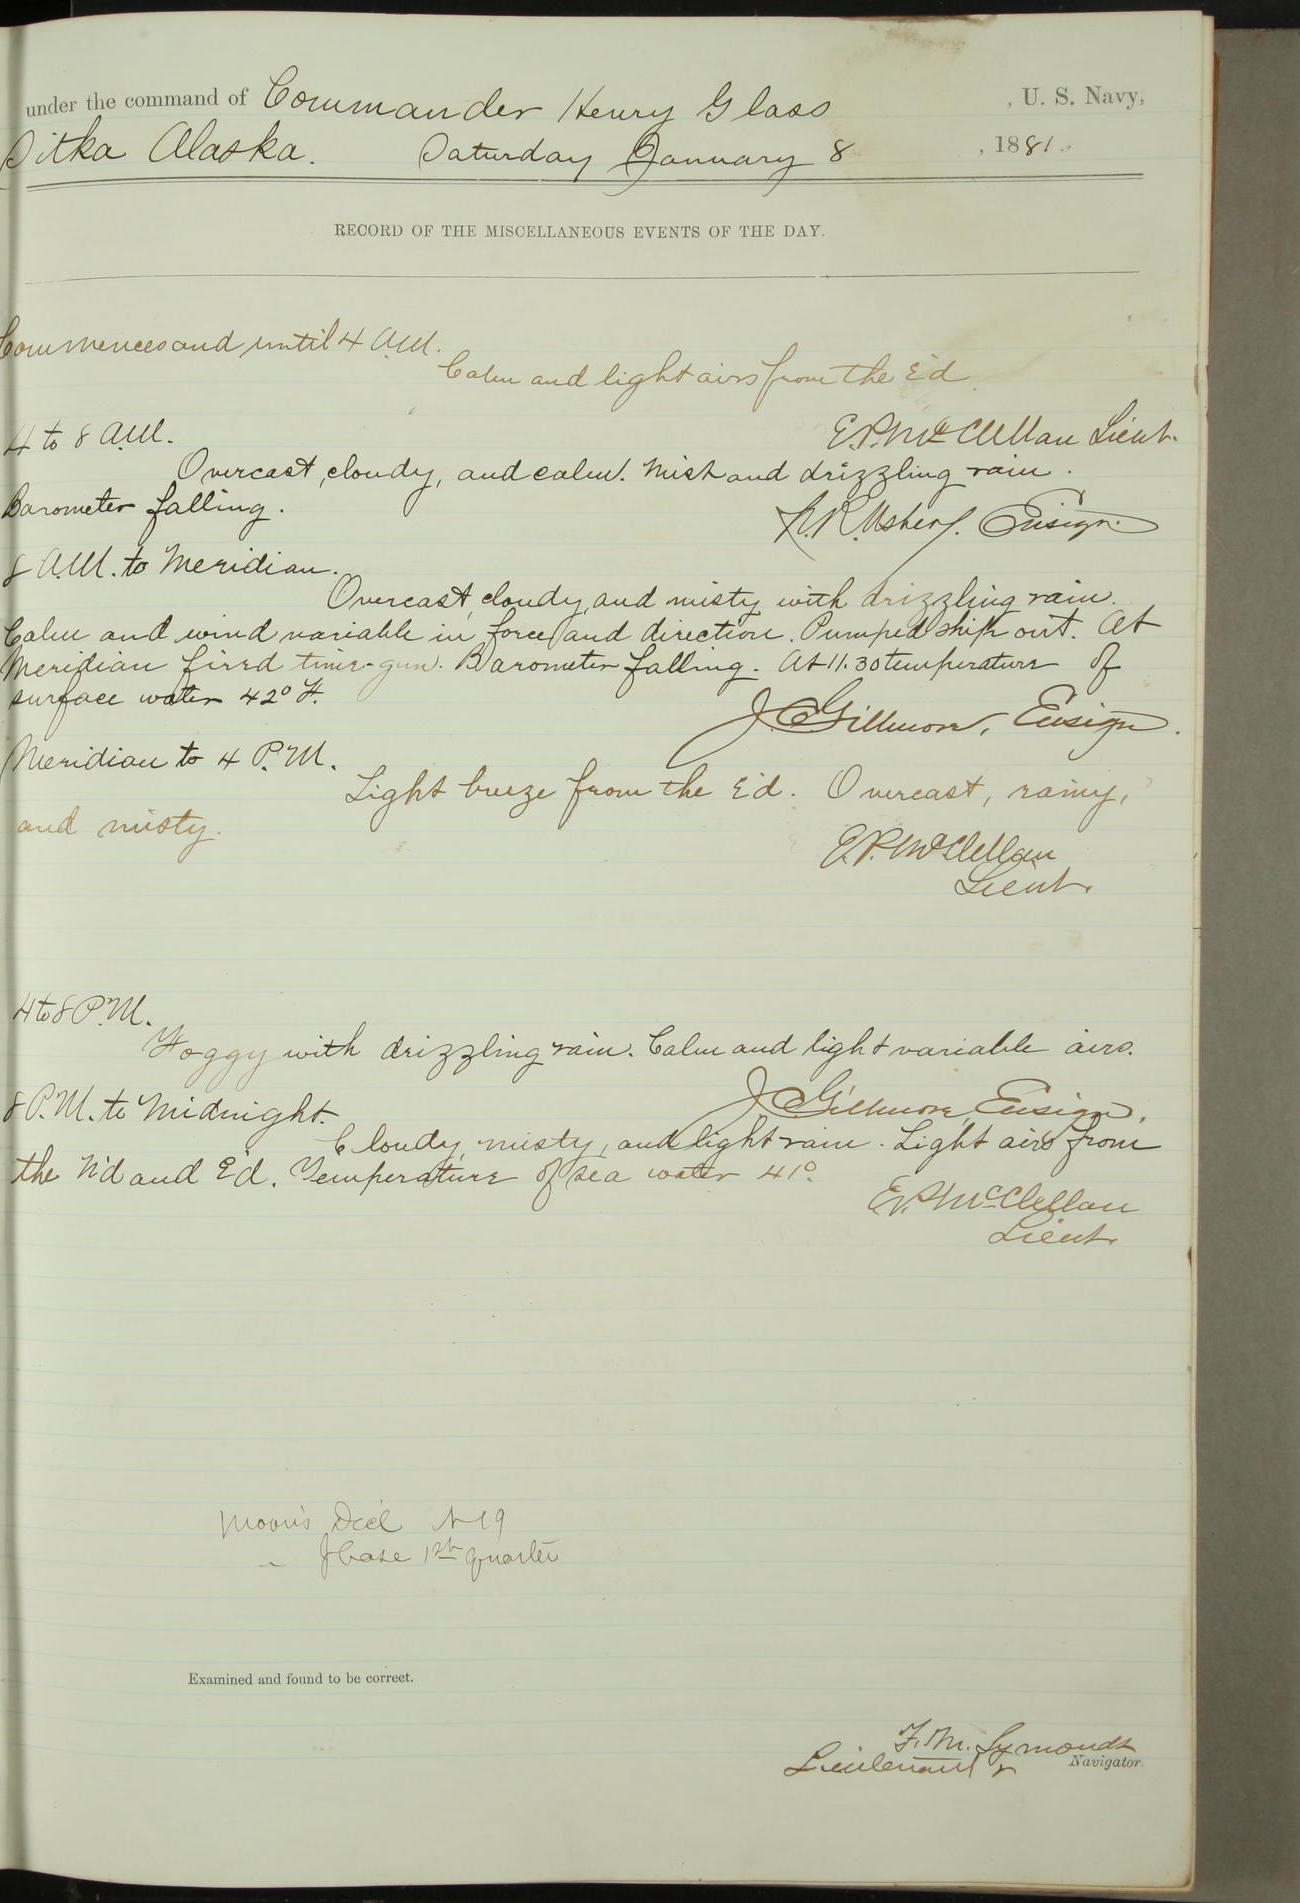 under the command of Commander Henry Glass , U. S. Navy,
Sitka Alaska. Saturday January 8 , 1881.
RECORD OF THE MISCELLANEOUS EVENTS OF THE DAY.
Commences and until 4 A.M.
Calm and light airs from the E'd
E.P. McClellan Lieut.
4 to 8 A.M.
Overcast, cloudy, and calm. Mist and drizzling rain.
Barometer falling.
N.R. Usher. Ensign.
8 A.M. to Meridian.
Overcast, cloudy, and misty with drizzling rain.
Calm and wind variable in force and direction. Pumped ship out. At
Meridian fired time-gun. Barometer falling. At 11.30 temperature of
surface water 42° F.
J. C. Gillmore, Ensign.
Meridian to 4 P.M.
Light breeze from the E'd. Overcast, rainy,
and misty.
E.P. McClellan
Lieut.
4 to 8 P.M.
Foggy with drizzling rain. Calm and light variable airs.
J. C. Gillmore, Ensign.
8 P.M. to Midnight.
Cloudy, misty, and light rain. Light airs from
the N'd and E'd. Temperature of sea water 41°.
E.P. McClellan
Lieut.
Moon's Decl N 19
" Phase 1st quarter
Examined and found to be correct.
F. M. Symonds
Lieutenant & Navigator.